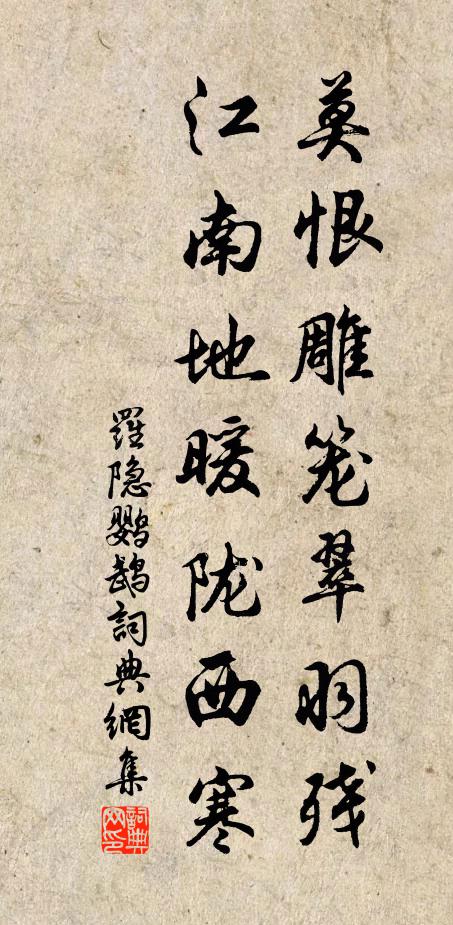 莫恨雕笼翠羽残
江南地暖陇西寒
羅隐鹦鹉詞典網集
詞典
网印